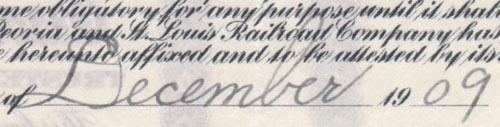 me obligatory for any purpose until it shal
Peoria and St. Louis Railroad Company has
e hereunto affixed and to be attested by its
of December 1909